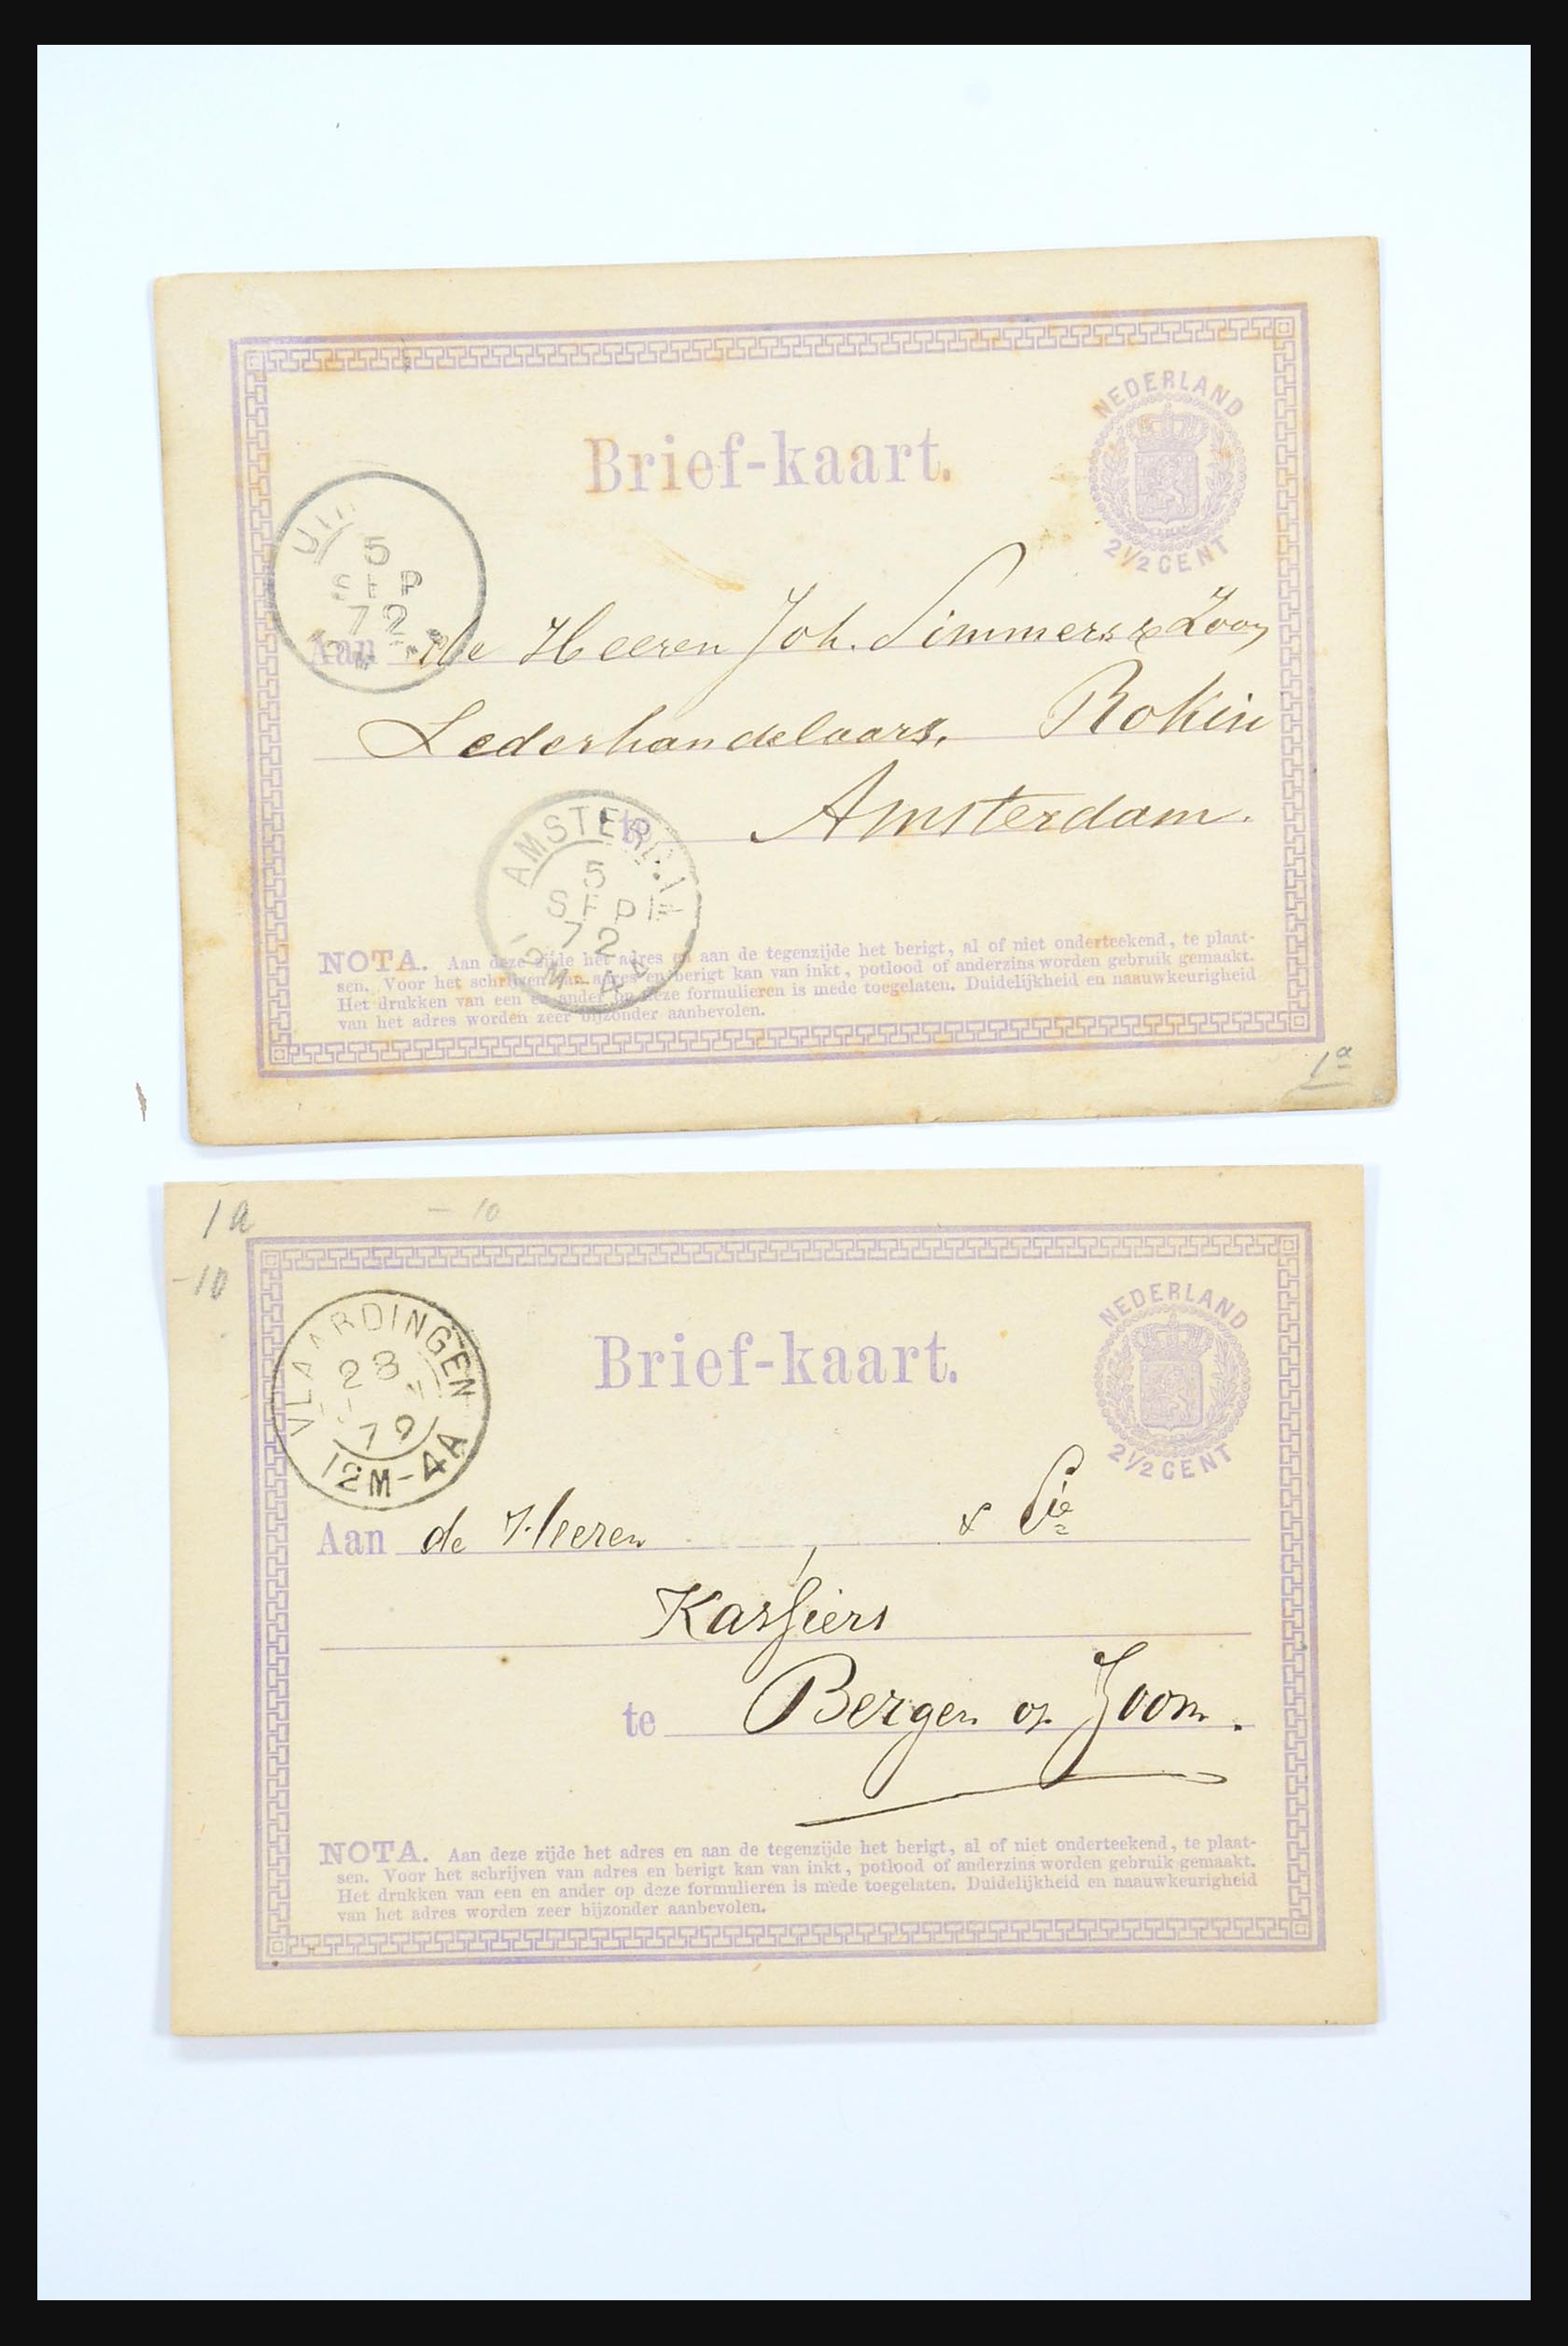 NEDERLAND
Brief-kaart.
2½ CENT
5
SEP
72
Aan de Heeren Joh. Simmers & Zoon
Lederhandelaars, Rokin
te Amsterdam.
AMSTERD
5
SEP
72
12M-4A
NOTA. Aan deze zijde het adres en aan de tegenzijde het berigt, al of niet onderteekend, te plaat-
sen. Voor het schrijven van adres en berigt kan van inkt, potlood of anderzins worden gebruik gemaakt.
Het drukken van een en ander op deze formulieren is mede toegelaten. Duidelijkheid en naauwkeurigheid
van het adres worden zeer bijzonder aanbevolen.
1a
1a
- 10
-10
NEDERLAND
VLAARDINGEN
28
72
12M-4A
Brief-kaart.
2½ CENT
Aan de Heeren & Cie
Kassiers
te Bergen op Zoom.
NOTA. Aan deze zijde het adres en aan de tegenzijde het berigt, al of niet onderteekend, te plaat-
sen. Voor het schrijven van adres en berigt kan van inkt, potlood of anderzins worden gebruik gemaakt.
Het drukken van een en ander op deze formulieren is mede toegelaten. Duidelijkheid en naauwkeurigheid
van het adres worden zeer bijzonder aanbevolen.